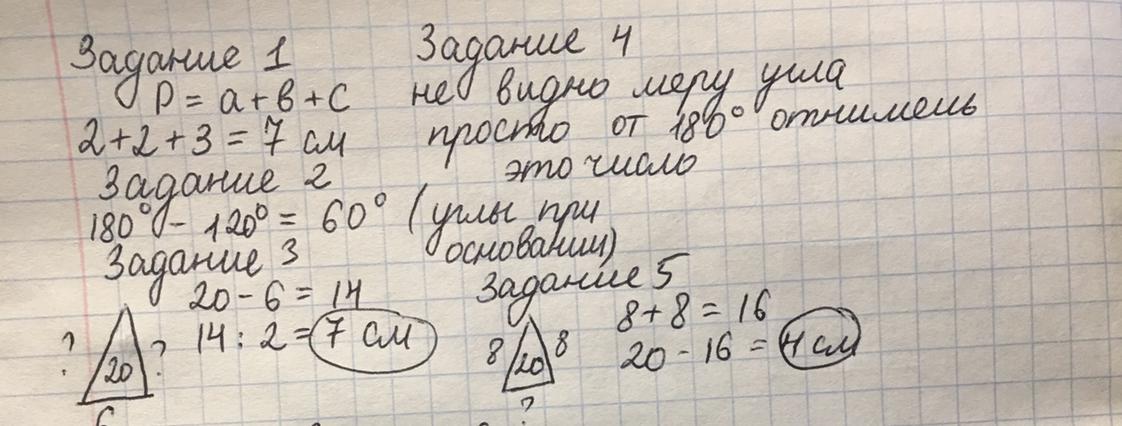 Задание 1
P = a + b + c
2 + 2 + 3 = 7 см
Задание 2
180° - 120° = 60° (углы при
основании)
Задание 3
20 - 6 = 14
14 : 2 = 7 см
? 20 ?
6
Задание 4
не видно меру угла
просто от 180° отнимешь
это число
Задание 5
8 + 8 = 16
20 - 16 = 4 см
8 20 8
?